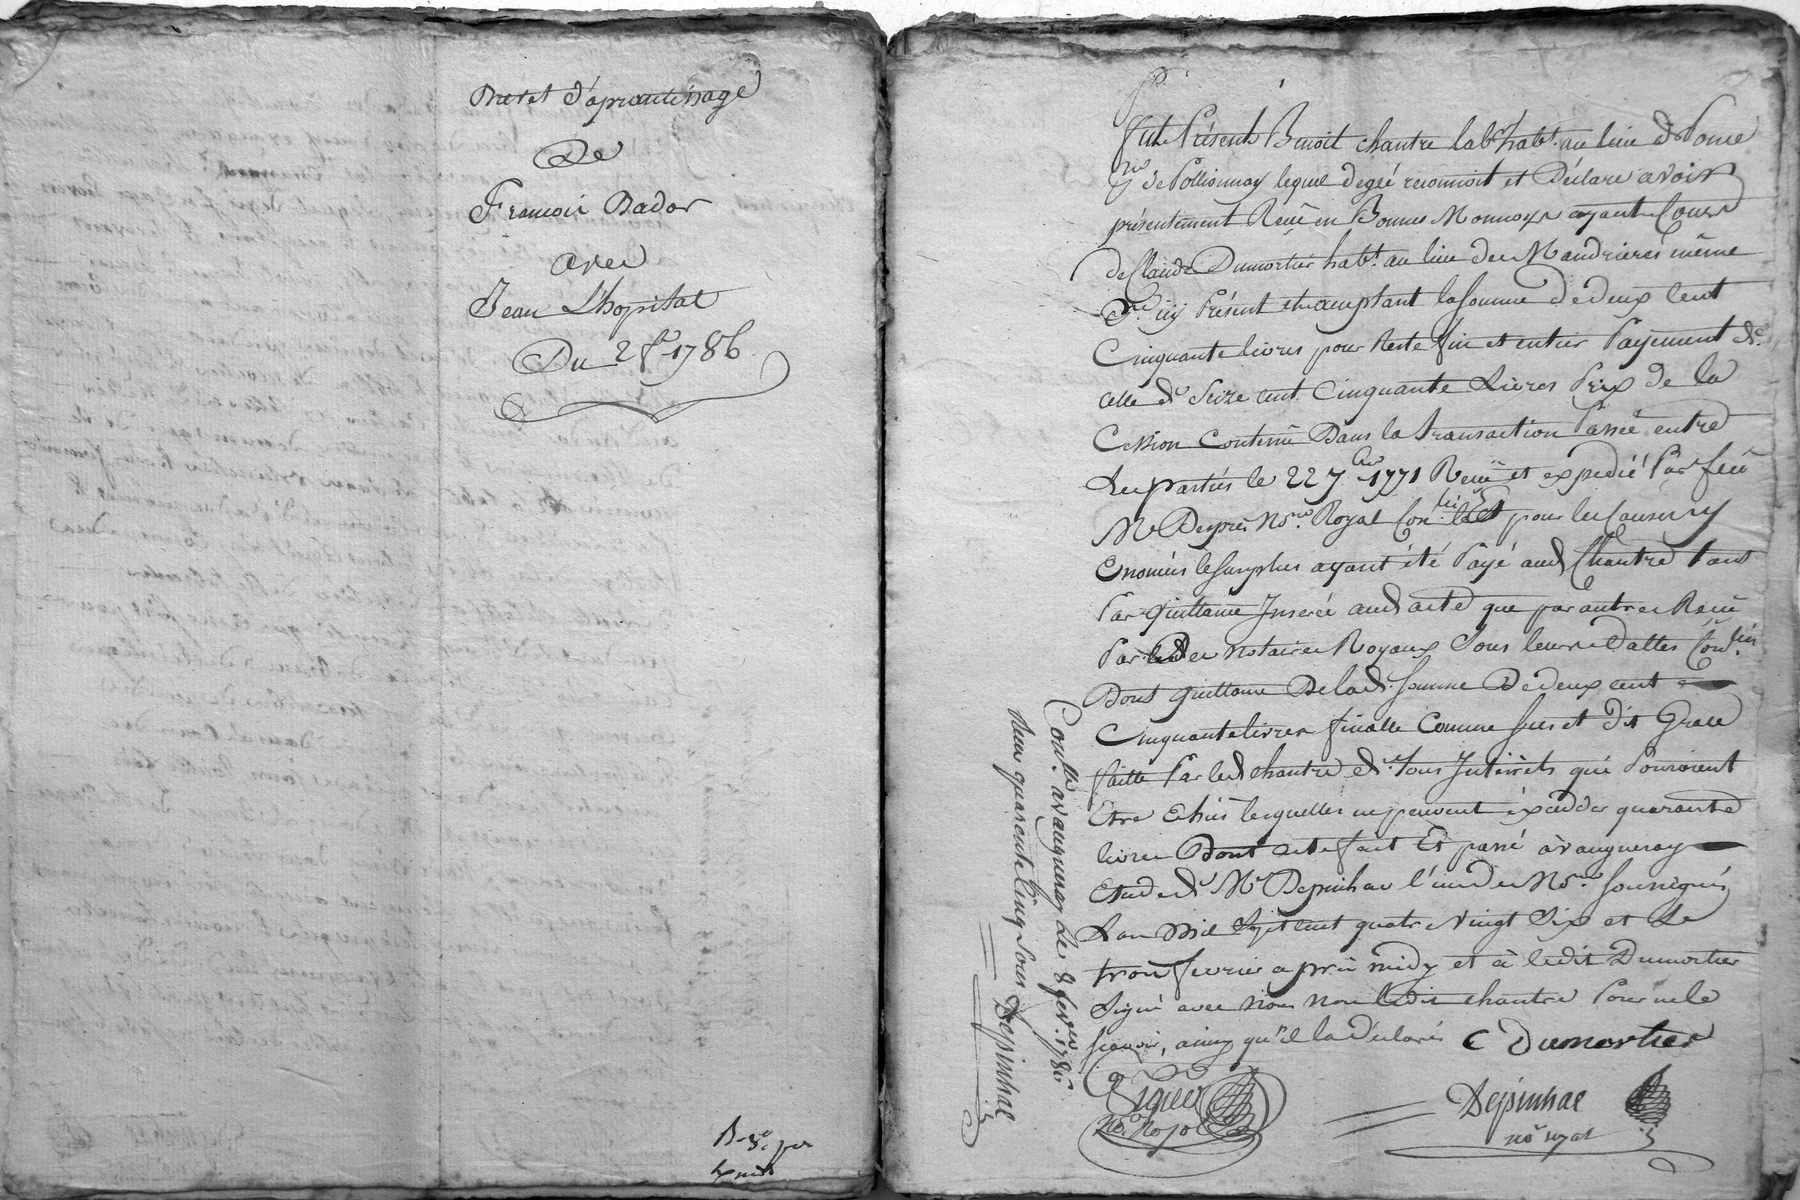 Brevet d'aprentissage
De
François Bador
avec
Jean L'hopital
Du 2 fr. 1786
fut Présent Benoit chantre lab. habt. au lieu de
de Pollionnay lequel de gré reconnoit et Déclare avoir
présentement Reçu en Bonnes Monnoye ayant Cours
de Claude Dumortier habt. au lieu des Mandrieres même
psse. icy Présent et acceptant la somme de deux Cent
Cinquante livres pour Reste fin et entier Payement de
celle de Seize cent Cinquante Livres Prix de la
Cession Contenue Dans la transaction Passée entre
Les parties le 22 7bre 1771 Reçue et expedié Par feu
Me Desprès Nore. Royal Conlée pour les Causes y
Enoncées le surplus ayant été Payé aud. Chantre tant
Par quittance Inserée aud. acte que par autres Reçue
Par notaires Royaux Sous leurs Dattes
Dont quittance De lad. somme De deux cent
Cinquante livres finalle Comme sus et dit Grace
faitte Par led. chantre de tous Intérêts qui Pouroient
Etre Echus lesquelles ne peuvent éxceder quarante
livres Dont acte fait Et passé à vaugneray
Etude de Me Depinhac l'un des Nores. soussignés
L'an Mil Sept cent quatre Vingt Six et Le
trois fevrier après midy et à ledit Dumortier
Signé avec nous non ledit chantre Pour ne le
scavoir, ainsy qu'il la Déclaré C Dumortier
Depinhac
nore royal
nore. royal
Conllé à vaugneray le 8 fevrier 1786
Reçu quarente Cinq Sous Depinhac